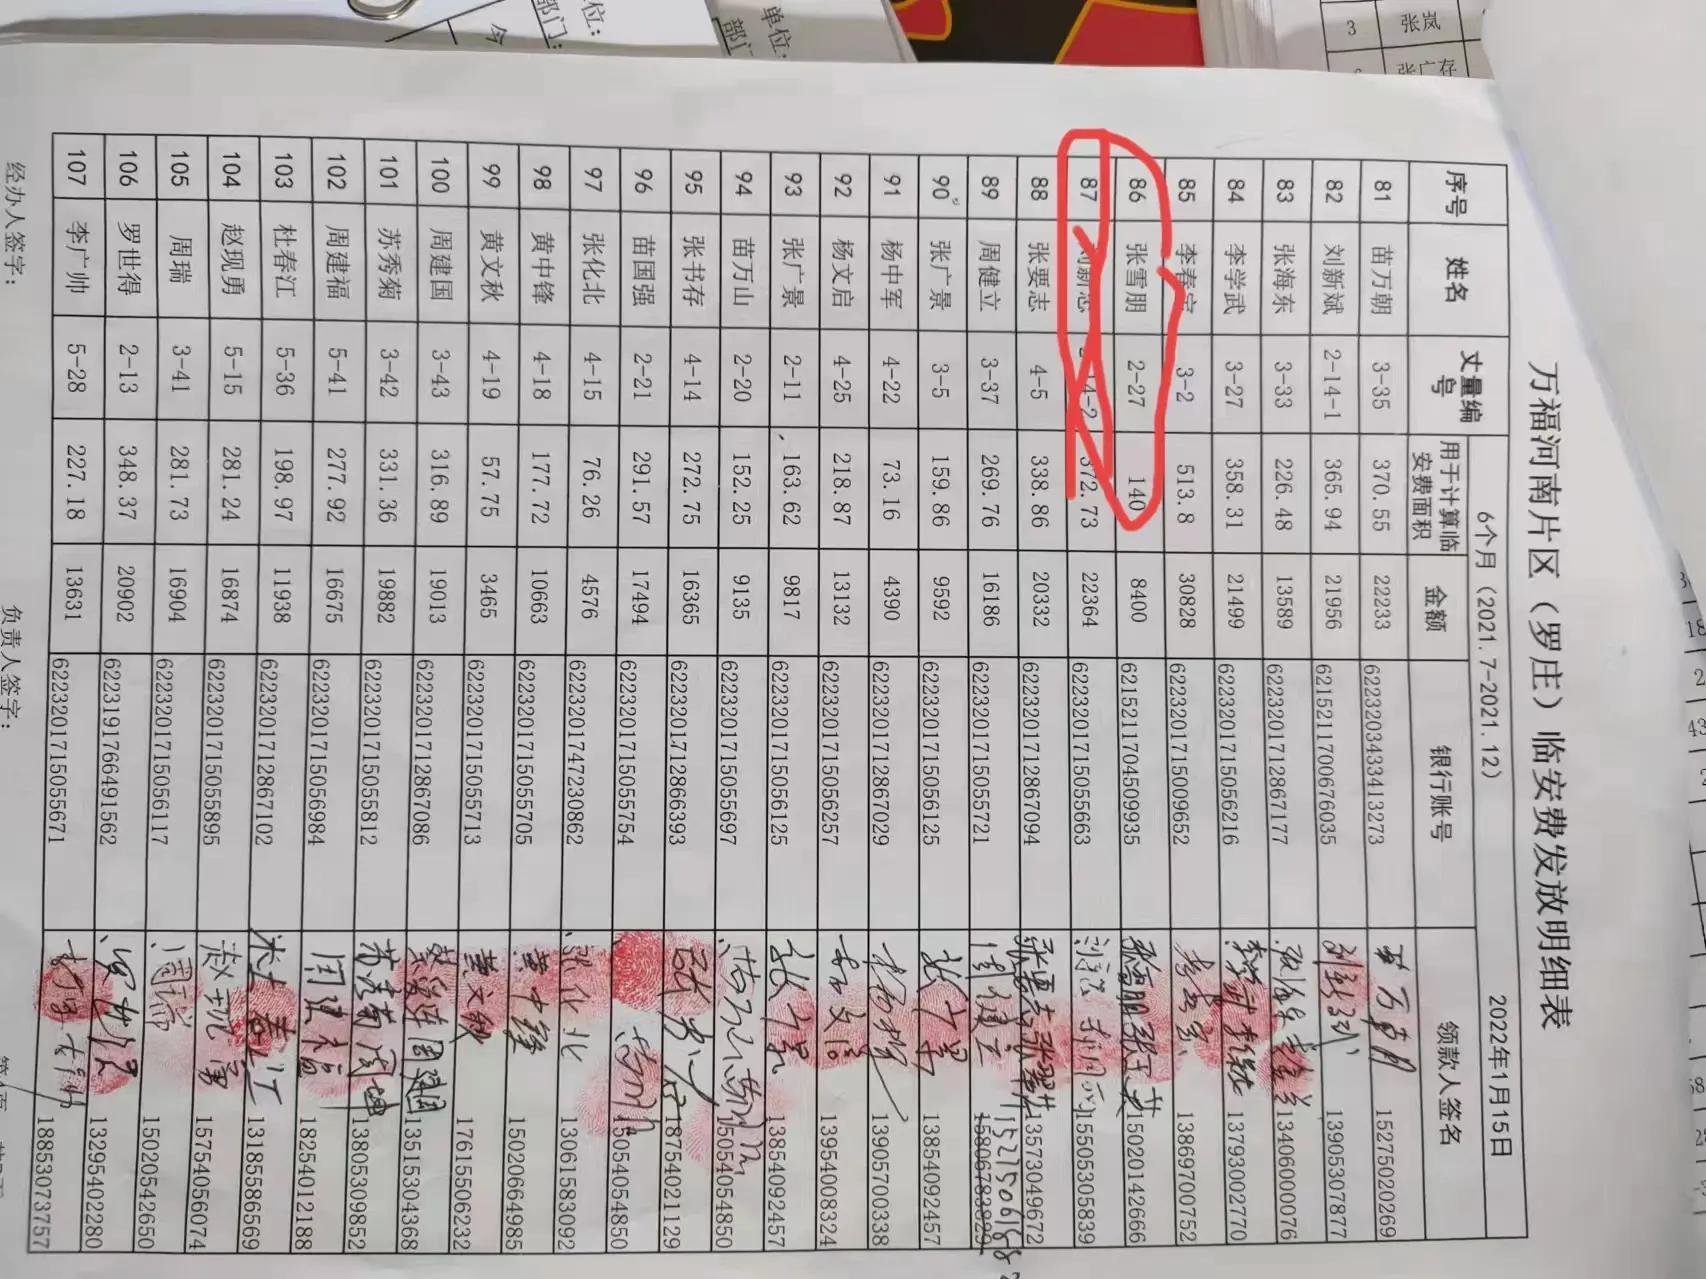 万福河南片区（罗庄）临安费发放明细表
6个月（2021.7-2021.12） 2022年1月15日
序号 姓名 丈量编号 用于计算临安费面积 金额 银行账号 领款人签名
81 苗万朝 3-35 370.55 22233 6223203433413273 苗万朝 15275020269
82 刘新斌 2-14-1 365.94 21956 6215211700676035 刘新斌 13905307877
83 张海东 3-33 226.48 13589 6223201712867177 13406000076
84 李学武 3-27 358.31 21499 6223201715056216 13793002770
85 李春宝 3-2 513.8 30828 6223201715009652 13869700752
86 张雪朋 2-27 140 8400 6215211704509935 张雪朋 15020142666
87 刘新忠 372.73 22364 6223201715055663 15505305839
88 张要志 4-5 338.86 20332 6223201712867094 张要志 13573049672
89 周健立 3-37 269.76 16186 6223201715055721 周健立 15806783829
90 张广景 3-5 159.86 9592 6223201715056125 张广景 13854092457
91 杨中军 4-22 73.16 4390 6223201712867029 13905700338
92 杨文启 4-25 218.87 13132 6223201715056257 杨文启 13954008324
93 张广景 2-11 163.62 9817 6223201715056125 张广景 13854092457
94 苗万山 2-20 152.25 9135 6223201715055697 15054054850
95 张书存 4-14 272.75 16365 6223201712866393 18754021129
96 苗国强 2-21 291.57 17494 6223201715055754 15054054850
97 张化北 4-15 76.26 4576 6223201747230862 张化北 13061583092
98 黄中锋 4-18 177.72 10663 6223201715055705 黄中锋 15020664985
99 黄文秋 4-19 57.75 3465 6223201715055713 黄文秋 17615506232
100 周建国 3-43 316.89 19013 6223201712867086 周建国 13515304368
101 苏秀菊 3-42 331.36 19882 6223201715055812 苏秀菊 13805309852
102 周建福 5-41 277.92 16675 6223201715056984 周建福 18254012188
103 杜春江 5-36 198.97 11938 6223201712867102 杜春江 13185586569
104 赵现勇 5-15 281.24 16874 6223201715055895 赵现勇 15754056074
105 周瑞 3-41 281.73 16904 6223201715056117 周瑞 15020542650
106 罗世得 2-13 348.37 20902 6223191766491562 13295402280
107 李广帅 5-28 227.18 13631 6223201715055671 18853073757
经办人签字： 负责人签字：
单位：
部门：
3 张岚
张广存